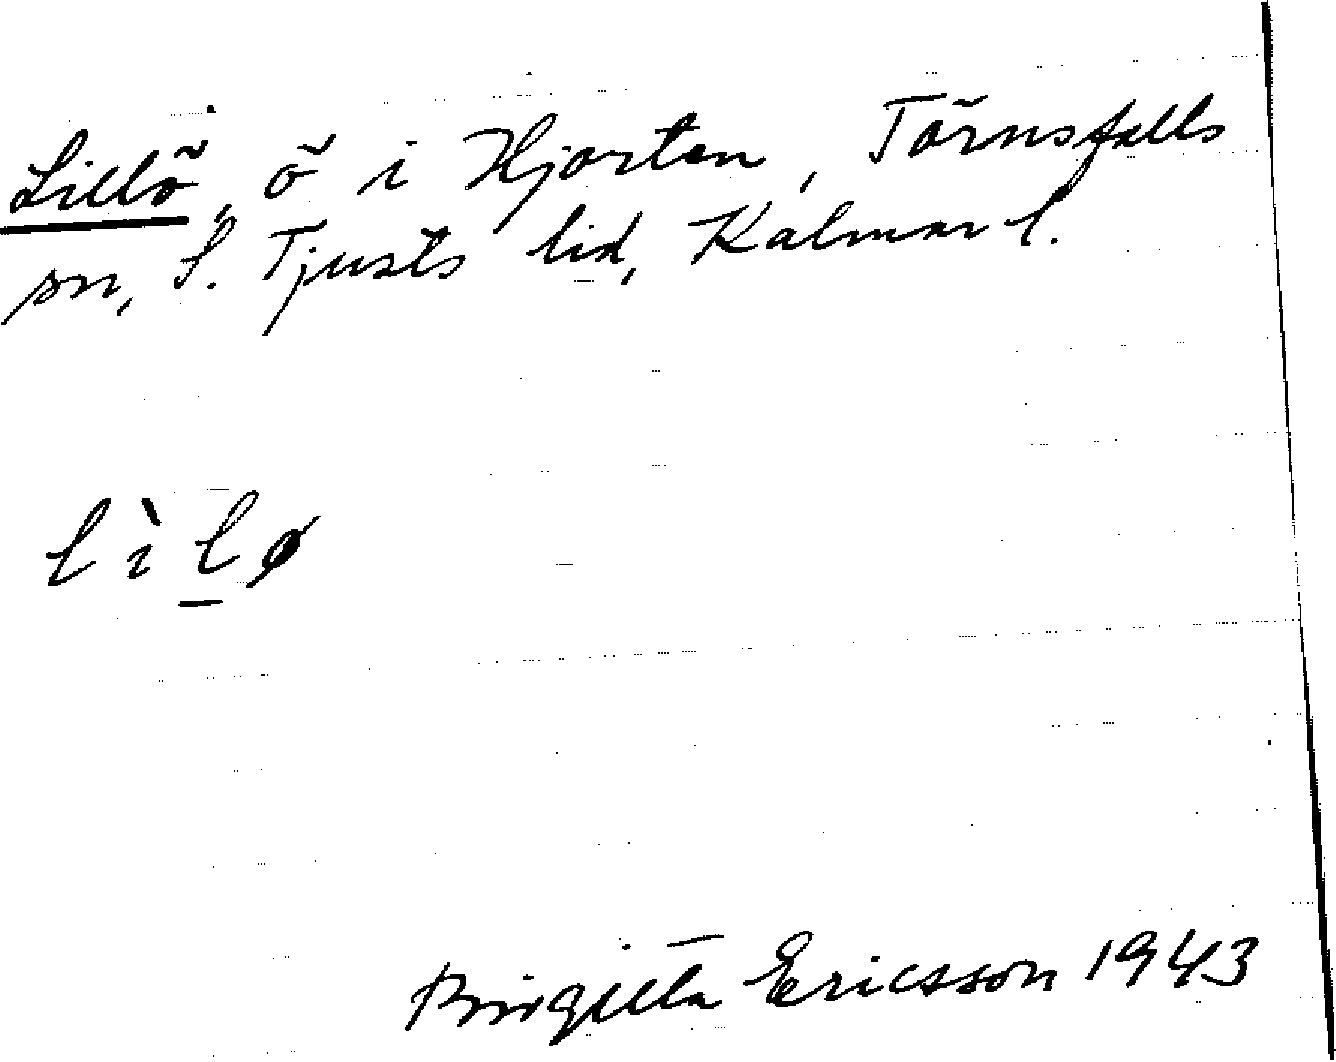 Lillö, ö i Hjorten, Törnsfalls
sn, S. Tjusts hd, Kalmar l.
lìlø
Birgitta Ericsson 1943